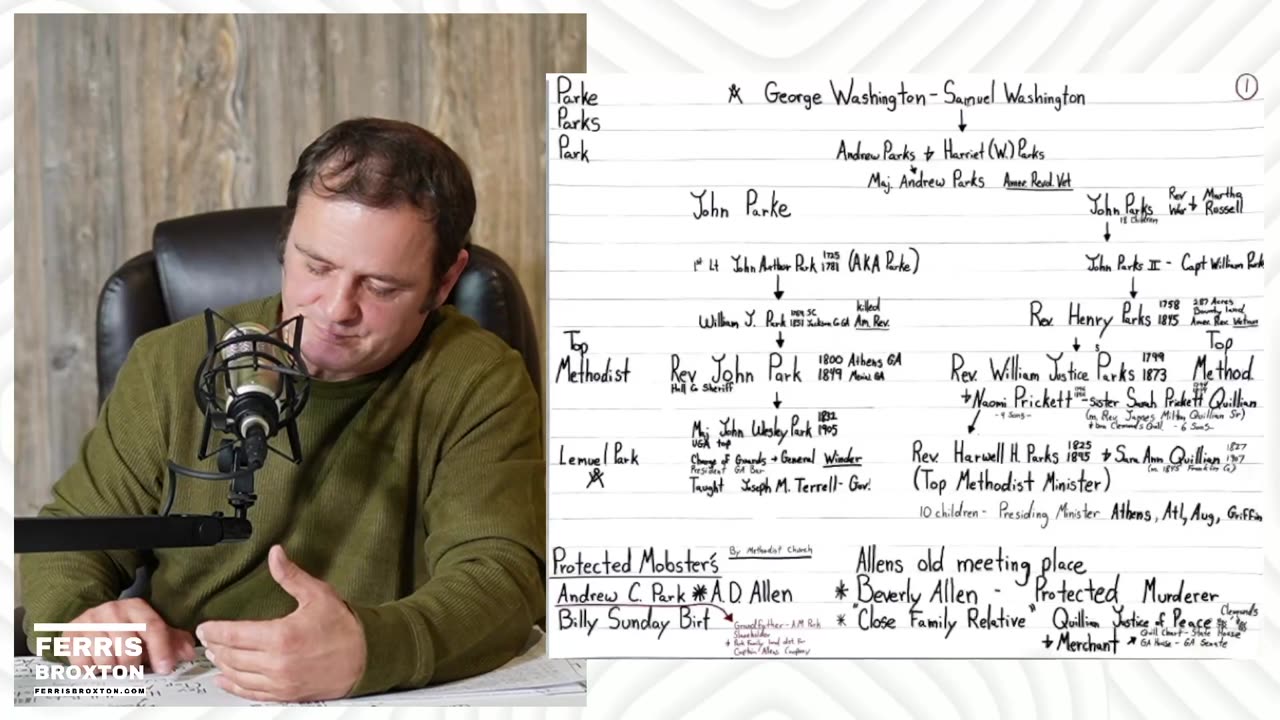 Parke
Parks
Park
George Washington - Samuel Washington
1
Andrew Parks + Harriet (W.) Parks
Maj. Andrew Parks Amer. Revol. Vet
John Parke
John Parks Rev War + Martha Russell
18 Children
1st Lt John Arthur Park 1725 1781 (AKA Parke)
John Parks II - Capt William Park
William J. Park killed Am. Rev.
Rev. Henry Parks 1758 1845 287 Acres Bounty Land Amer. Rev. Veteran
Top Methodist
Rev John Park 1800 Athens GA 1849
Hall Co Sheriff
Rev. William Justice Parks 1799 1873
Top Method.
+ Naomi Prickett - sister Sarah Prickett Quillian
- 4 Sons -
(m. Rev. James Milton Quillian Sr)
- 6 Sons -
Lemuel Park
Maj John Wesley Park 1832 1905
UGA top
Charge of Grounds → General Winder
President GA Bar
Taught Joseph M. Terrell - Gov.
Rev. Harwell H. Parks 1825 1895 + Sara Ann Quillian 1827 1907
(m. 1845 Franklin Co)
(Top Methodist Minister)
10 children - Presiding Minister Athens, Atl, Aug, Griffin
Protected Mobster's By Methodist Church
Andrew C. Park * A.D. Allen
Billy Sunday Birt
Grandfather - A.M. Park
Slaveholder
+ Park Family land dist. for
Captain Allens Company
Allens old meeting place
* Beverly Allen - Protected Murderer
* "Close Family Relative" Quillian Justice of Peace Clemonds
+ Merchant Quill Chart - State House
GA House - GA Senate
FERRIS
BROXTON
FERRISBROXTON.COM